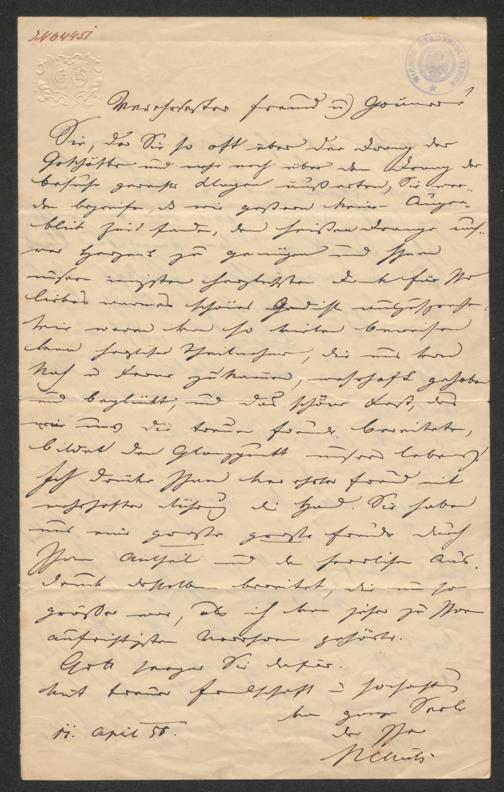 Verehrtester Freund u Gönner!
Sie, der Sie so oft über den Drang der
Geschäfte und mehr noch über den Drang der
Besuche gerechte Klagen äußerten, Sie wer-
den begreifen, daß wir gestern keinen Augen-
blick Zeit fanden, dem heißen Drange uns-
res Herzens zu genügen und Ihnen
unsern innigsten herzlichsten Dank für Ihr
liebes warmes schönes Gedicht auszusprechen.
Wir waren von so vielen Beweisen
herzlicher Theilnahme, die uns von
Nah u Ferne zukamen, wahrhaft gehoben
und beglückt, und das schöne Fest, das
uns die treuen Freunde bereiteten,
bildet den Glanzpunkt unsers Lebens.
Ich drücke Ihnen verehrter Freund mit
wahrhafter Rührung die Hand. Sie haben
uns eine große große Freude durch
Ihren Antheil und den herrlichen Aus-
druck desselben bereitet, die um so
größer war, als ich von jeher zu Ihren
aufrichtigsten Verehrern gehörte.
Gott segne Sie dafür.
Mit treuer Freundschaft u Hochachtung
von ganzer Seele
der Ihre
April 55.